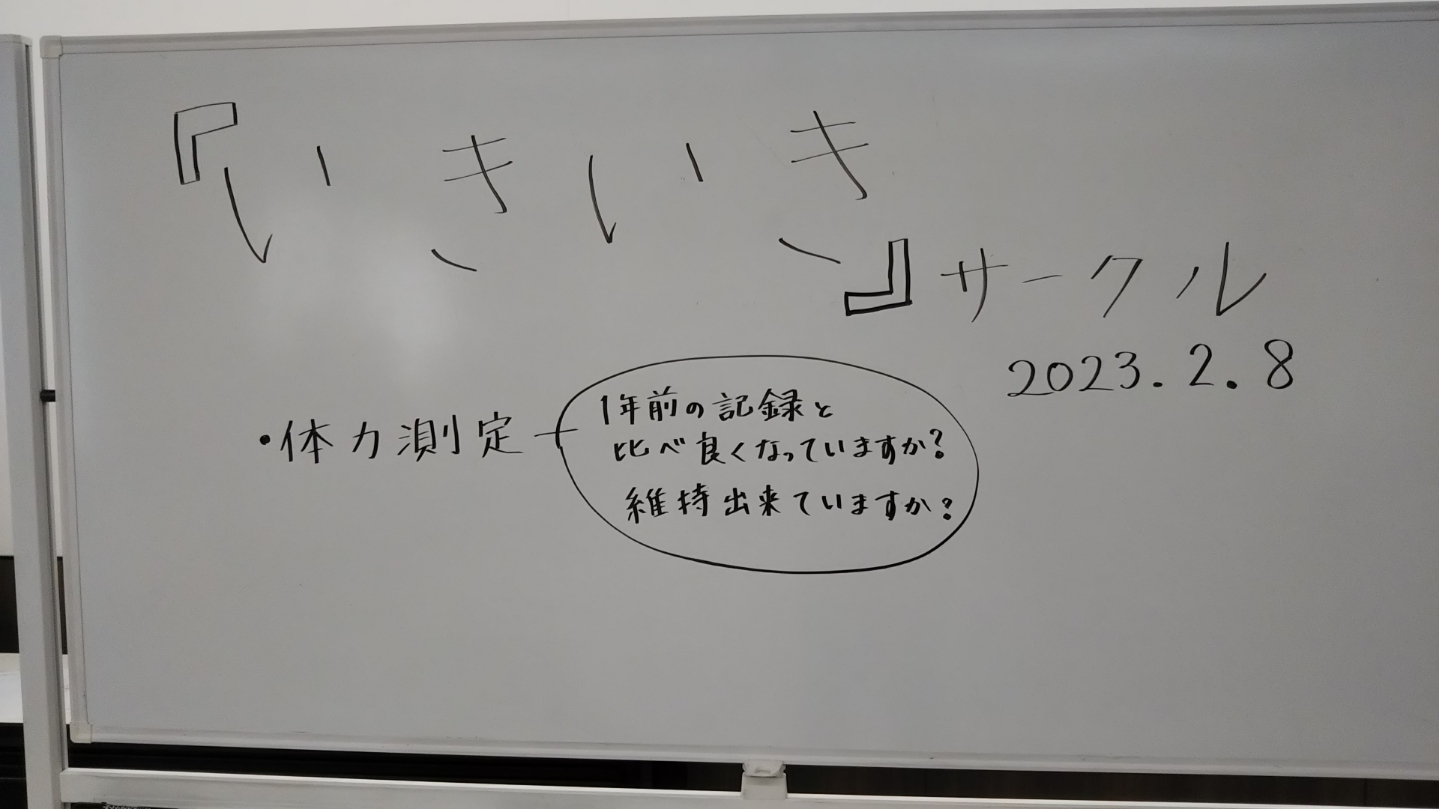 『いきいき』サークル
2023.2.8
・体力測定
1年前の記録と
比べ良くなっていますか?
維持出来ていますか?